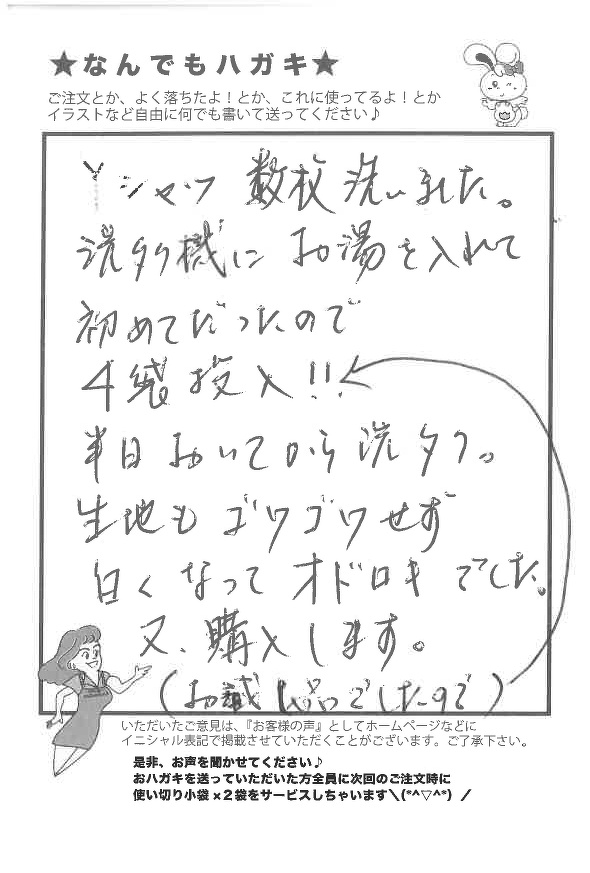 ★なんでもハガキ★
ご注文とか、よく落ちたよ！とか、これに使ってるよ！とか
イラストなど自由に何でも書いて送ってください♪
Yシャツ 数枚洗いました。
洗タク機に お湯を入れて
初めてだったので
4袋投入!!
半日おいてから洗タク。
生地もゴワゴワせず
白くなってオドロキでした。
又、購入します。
(お試し品でしたので)
いただいたご意見は、『お客様の声』としてホームページなどに
イニシャル表記で掲載させていただくことがございます。ご了承下さい。
是非、お声を聞かせてください♪
おハガキを送っていただいた方全員に次回のご注文時に
使い切り小袋×2袋をサービスしちゃいます＼(*^▽^*)／